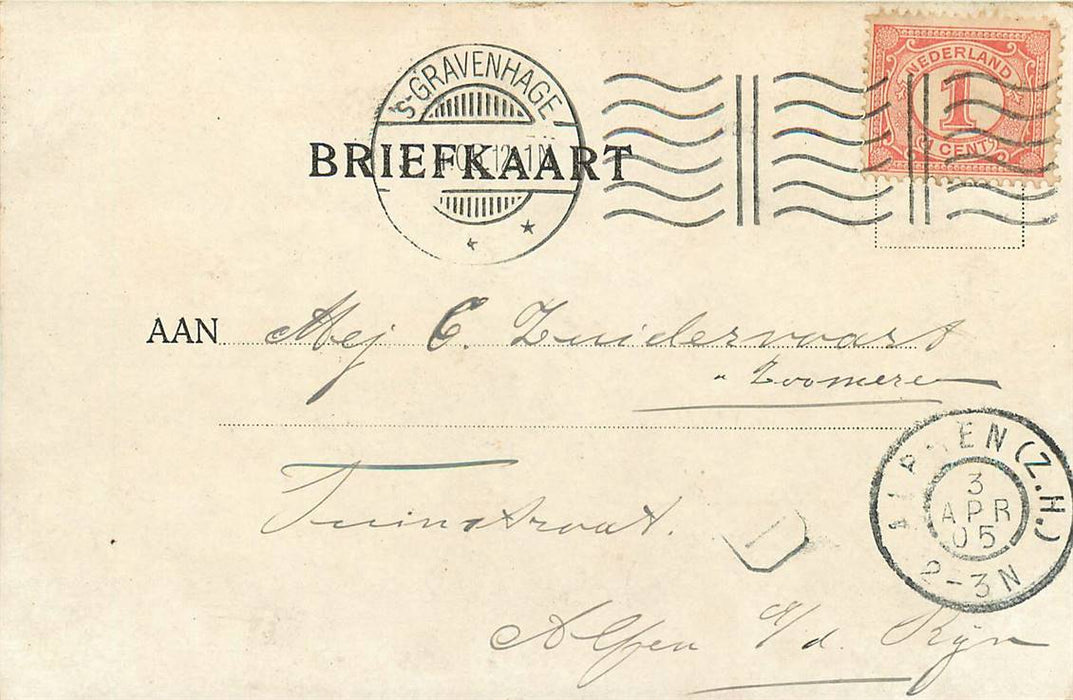 'S-GRAVENHAGE
NEDERLAND
1
CENT
12-1N
BRIEFKAART
AAN Mej C. Zuidervaart
" Zoomeren
ALPHEN (Z.H.)
3
APR
05
2-3N
Tuinstraat.
D
Alfen a/d. Rijn